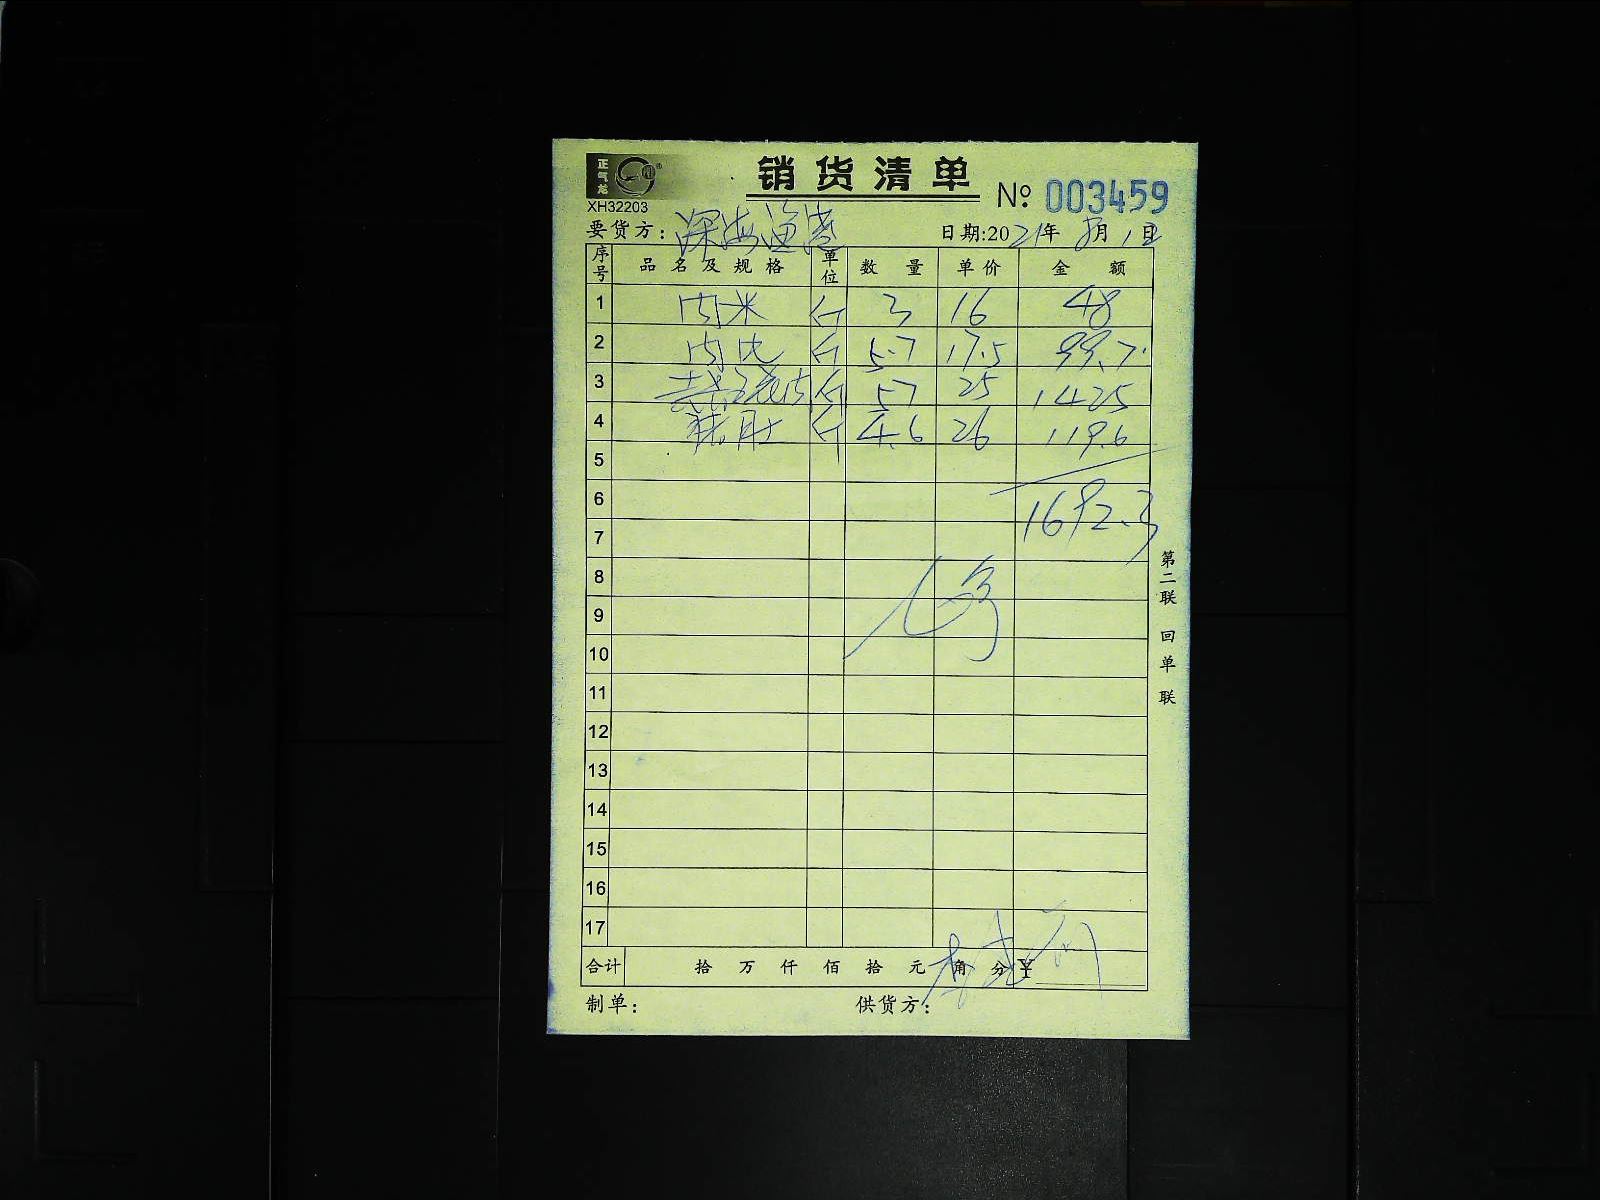 正气龙
销货清单
XH32203
№ 003459
要货方：深海渔港 日期:2021年 8月 1日
序号 品名及规格 单位 数量 单价 金额
1 肉米 斤 3 16 48
2 肉 斤 5.7 17.5 99.7
3 肉 斤 57 25 1425
4 猪肚 斤 4.6 26 119.6
5
6 1692.3
7
8
9
10
11
12
13
14
15
16
17
合计 拾 万 仟 佰 拾 元 角 分 ¥
制单： 供货方：
第二联 回单联